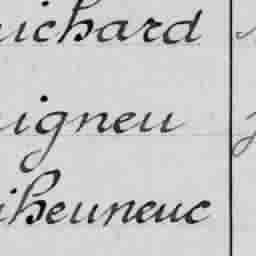 uichard
igneu
iheuneuc